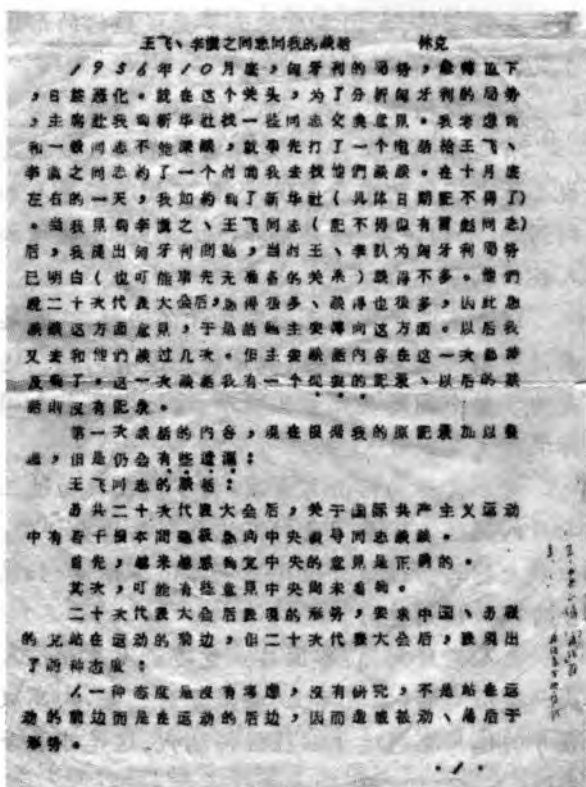 王飞、李慎之同志同我的谈话 林克
1956年10月底，匈牙利的局势，急转直下
，日益恶化。就在这个关头，为了分析匈牙利的局势
，主席让我到新华社找一些同志交换意见。我考虑到
和一般同志不他深谈，就事先打了一个电话给王飞、
李慎之同志约了一个时间我去找他們谈谈。在十月底
左右的一天，我如约到了新华社（具体日期記不得了）
。当我見到李慎之、王飞同志（記不得似有曾彪同志）
后，我提出匈牙利問題，当时王、李認为匈牙利局势
已明白（也可能事先无准备的关系）談得不多。他們
說二十次代表大会后，想得很多、談得也很多，因此想
談談这方面意見，于是話題主要轉向这方面。以后我
又去和他們談过几次。但主要談話内容在这一次都
及到了。这一次談話我有一个扼要的記录、以后的談
話則沒有記录。
第一次談話的内容，現在根据我的原記录加以整
，但是仍会有些遺漏：
王飞同志的談話：
苏共二十次代表大会后，关于国际共产主义运动
中有若干根本問題很想向中央領导同志談談。
首先，越来越感到党中央的意見是正确的。
其次，可能有些意見中央尚未看到。
二十次代表大会后出現的形势，要求中国、苏联
的党站在运动的前边，但二十次代表大会后，出現
了两种态度：
一种态度是沒有考慮，沒有研究，不是站在运
动的前边而是在运动的后边，因而造成被动、落后于
形势。
·1·